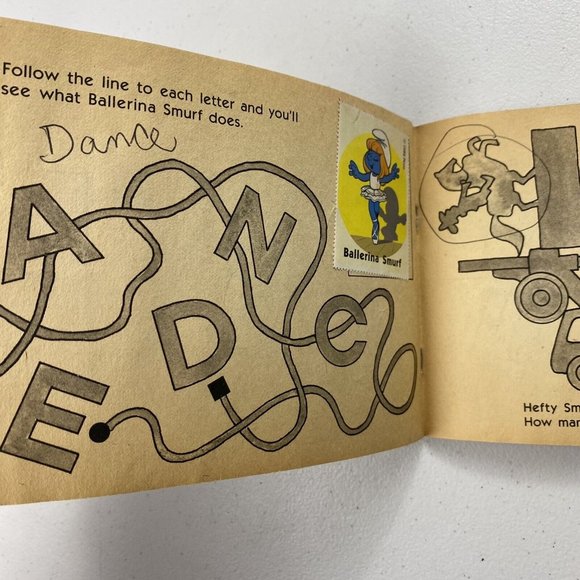 Follow the line to each letter and you'll
see what Ballerina Smurf does.
Dance
A
N
D
C
E
Ballerina Smurf
Hefty Sm
How man